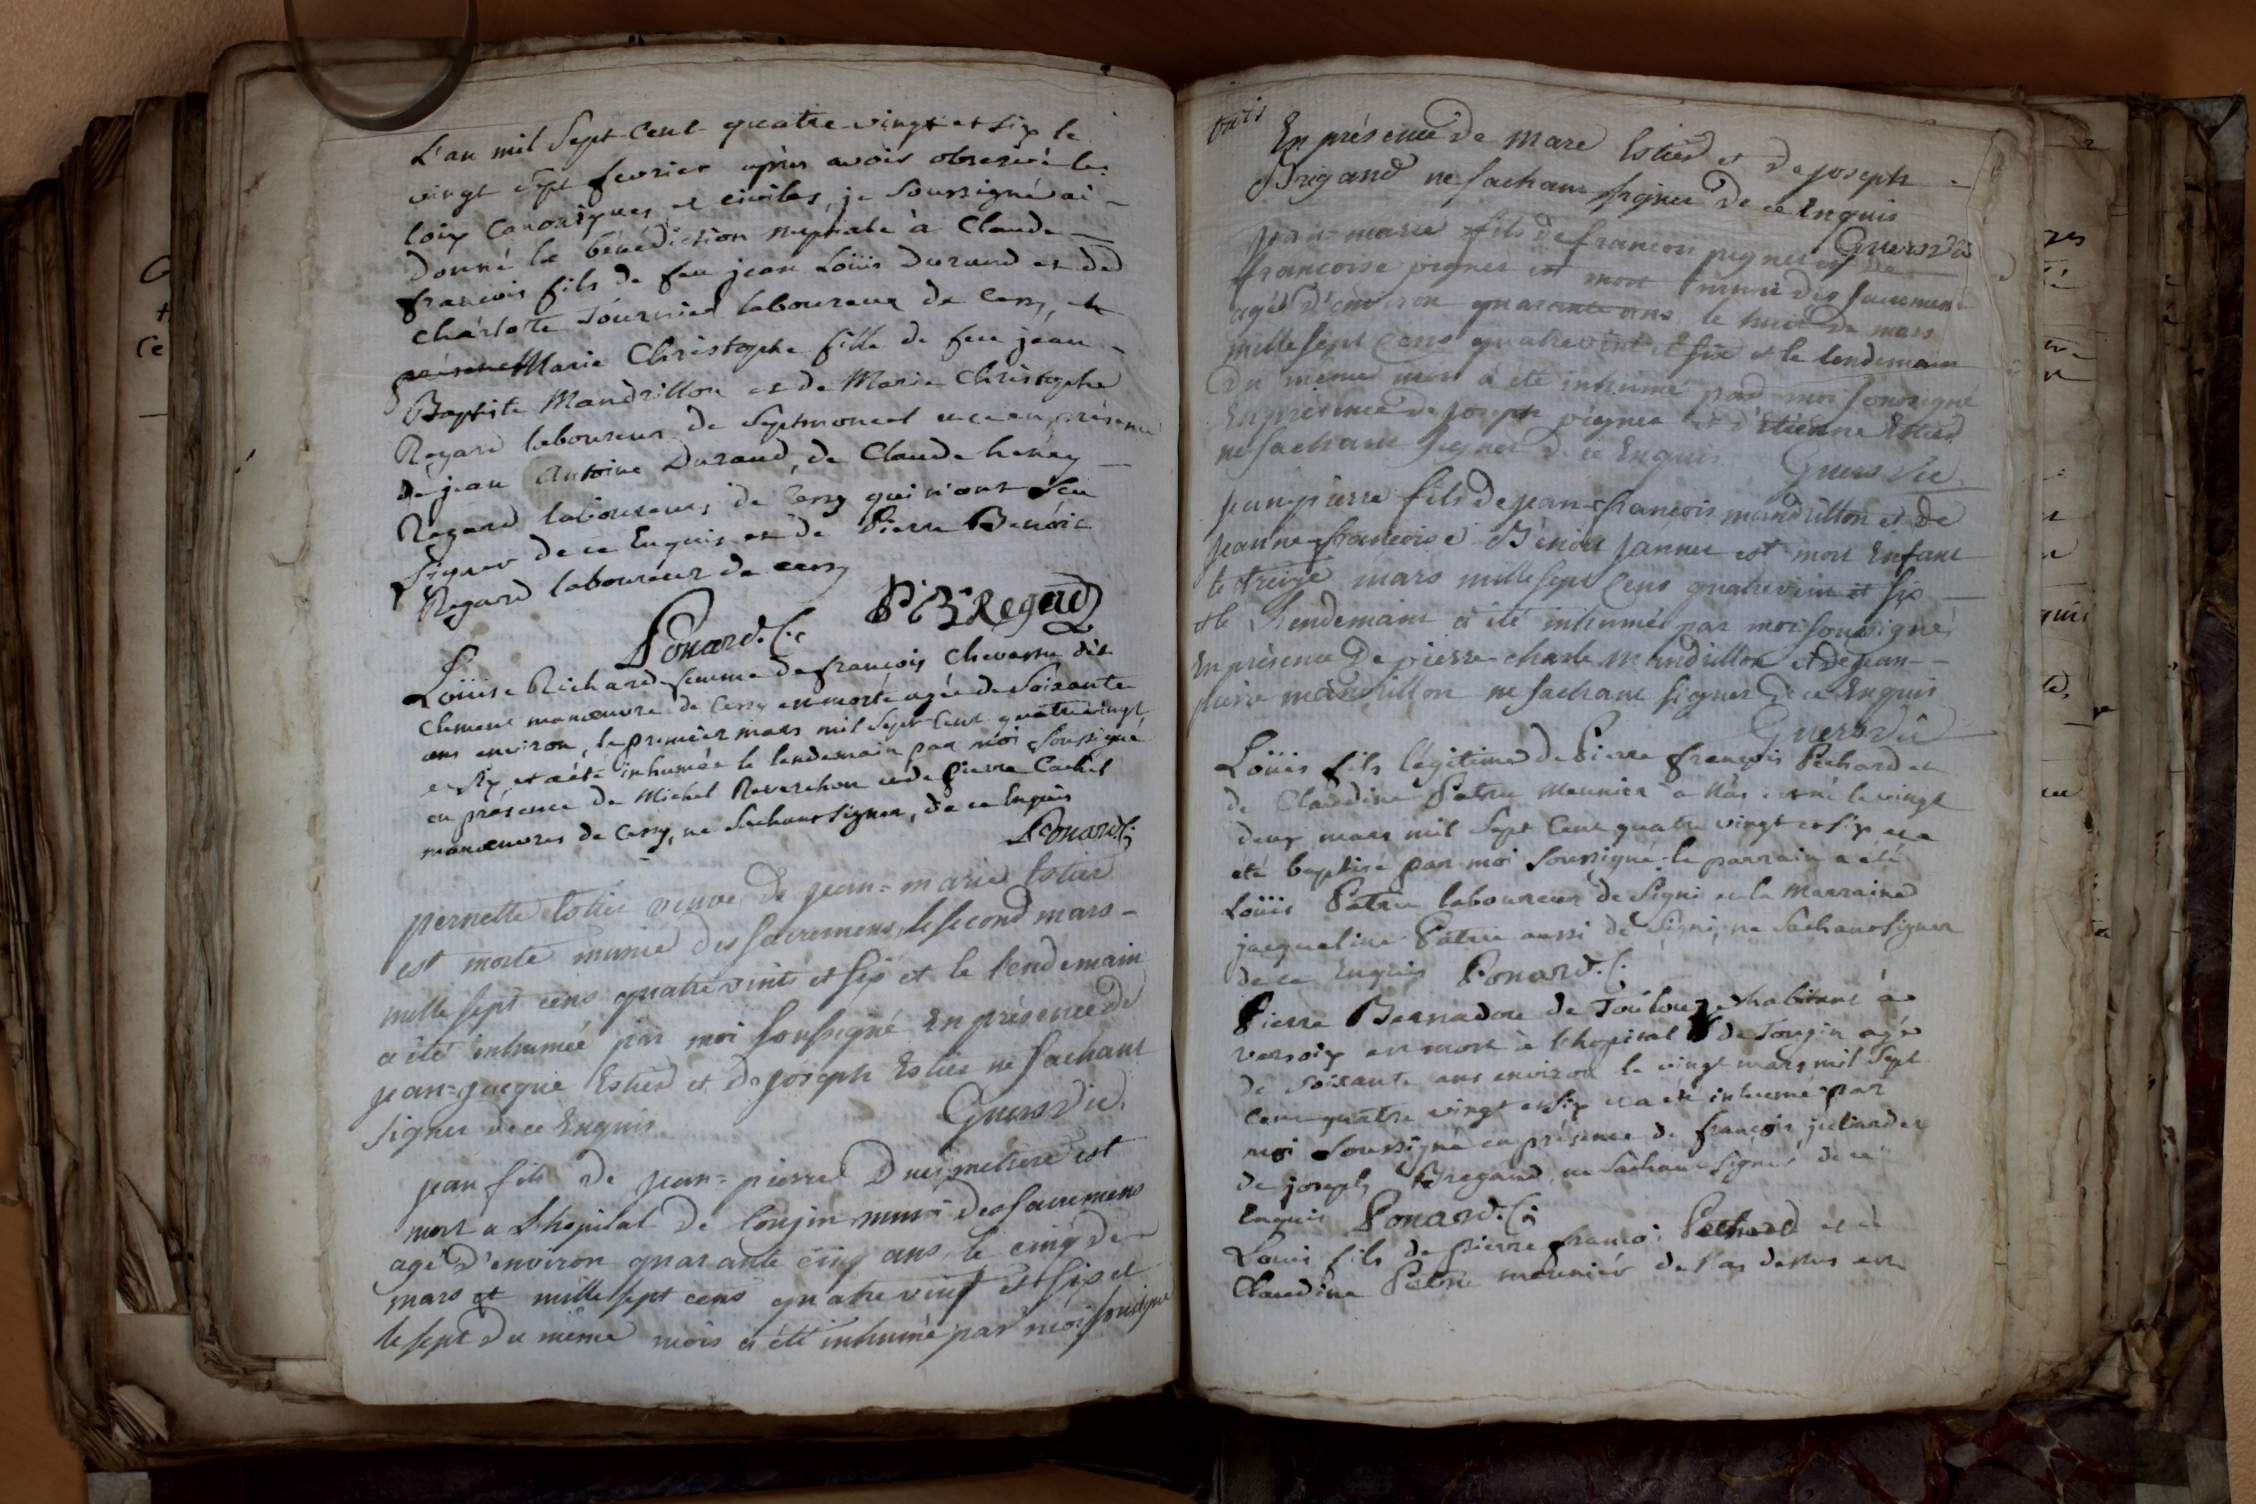 L'an mil Sept Cent quatre vingt et six le
vingt sept fevrier après avoir observé les
loix Canoniques et civiles, je Soussigné ai
donné la bénédiction nuptiale à Claude
françois fils de feu jean Loüis Durand et de
charlotte Fournier laboureur de Cessy, et
Marie Christophe fille de feu jean
Baptiste Mandrillon et de Marie Christophe
Regard laboureur de Septmoncel et ce en présence
de jean Antoine Durand, de Claude henry
Regard laboureurs de Cessy qui n'ont sçu
Signer de ce Enquis et de Pierre Benoit
Regard laboureur de cessy
Ponard. C. P: B: Regard
Loüise Richard femme de françois Chevassu dit
Clement manœuvre de Cessy est morte agée de Soixante
ans environ, le premier mars mil Sept Cent quatre vingt
et six, et a été inhumée le lendemain par moi Soussigné
en présence de Michel Reverchon et de Pierre Cachet
manœuvres de Cessy, ne Sachant Signer, de ce Enquis
Ponard C:
pernette Estier veuve de jean=marie Estier
est morte munie des sacremens, le second mars
mille sept cens quatre vints et six et le lendemain
a été inhumée par moi soussigné En présence de
jean=jacque Estier et de joseph Estier ne sachant
signer de ce Enquis Guers vic.
jean fils de jean=pierre est
mort a L'hopital de Tougin muni des sacremens
agé d'environ quarante cinq ans le cinq de
mars et mille sept cens quatre vint et six et
le sept du même mois a été inhumé par moi sousigné
En présence de Marc Estier et de joseph
Brigand ne sachant signer de ce Enquis
Guers vic
jean marie fils de francois pegner et de
francoise pegner est mort muni des sacremens
agé d'environ quarante ans le huit de mars
mille sept cens quatre vint et six et le lendemain
du même mois a été inhumé par moi sousigné
En présence de joseph pegner et d'Etienne Estier
ne sachant signer de ce Enquis Guers vic.
jean pierre fils de jean-francois mandrillon et de
jeanne francoise Benoit jannin est mort Enfant
le treize mars mille sept cens quatre vint et six
et le Lendemain a été inhumé par moi sousigné
En présence de pierre charle mandrillon et de jean
pierre mandrillon ne sachant signer de ce Enquis
Guers vic
Loüis fils légitime de Pierre françois Pechard et
de Claudine Patru meunier a est né le vingt
deux mars mil Sept Cent quatre vingt et six et a
été baptisé par moi Soussigné. le parrain a été
Loüis Patru laboureur de Segni et la Marraine
jacqueline Patru aussi de Segni, ne Sachant Signer
de ce Enquis Ponard. C.
Pierre Bernadou de Toulouze habitant à
versoix est mort à L'hopital de Tougin agé
de Soixante ans environ le vingt mars mil Sept
Cent quatre vingt et six et a été inhumé par
moi Soussigné en présence de françois et
de joseph Bregand, ne Sachant Signer de ce
Enquis Ponard. C:
Louis fils de pierre françoi Pechard et de
Claudine Patru meunier de dessus est